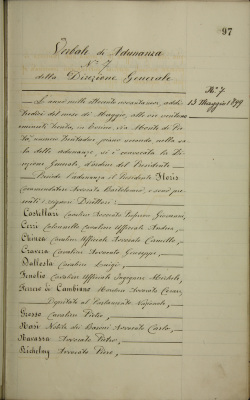 97
Verbale di Adunanza
N.º 7
della Direzione Generale
N.º 7
13 Maggio 1899
L'anno mille ottocento novantanove, addì
tredici del mese di Maggio, alle ore
in Torino, Via
numero piano secondo nella sa-
la delle adunanze, si è convocata la Di-
rezione Generale, d'ordine del Presidente
Presiede l'adunanza il Presidente Floris
Commendatore Avvocato Bartolomeo, e sono pre-
senti i signori Direttori:
Castellari Cavaliere Avvocato Giovanni,
Cerri Colonnello Cavaliere Ufficiale Andrea,
Chiesa Cavaliere Ufficiale Avvocato Camillo,
Cravero Cavaliere Avvocato Giuseppe,
Ballesta Cavaliere Luigi,
Fenolio Cavaliere Ufficiale Ingegnere
Ferrero di Cambiano Marchese Avvocato Cesare,
Deputato al Parlamento Nazionale,
Grosso Cavaliere Pietro,
Nasi Nobile dei Baroni Avvocato Carlo,
Navarra Avvocato Pietro,
Avvocato Piero,